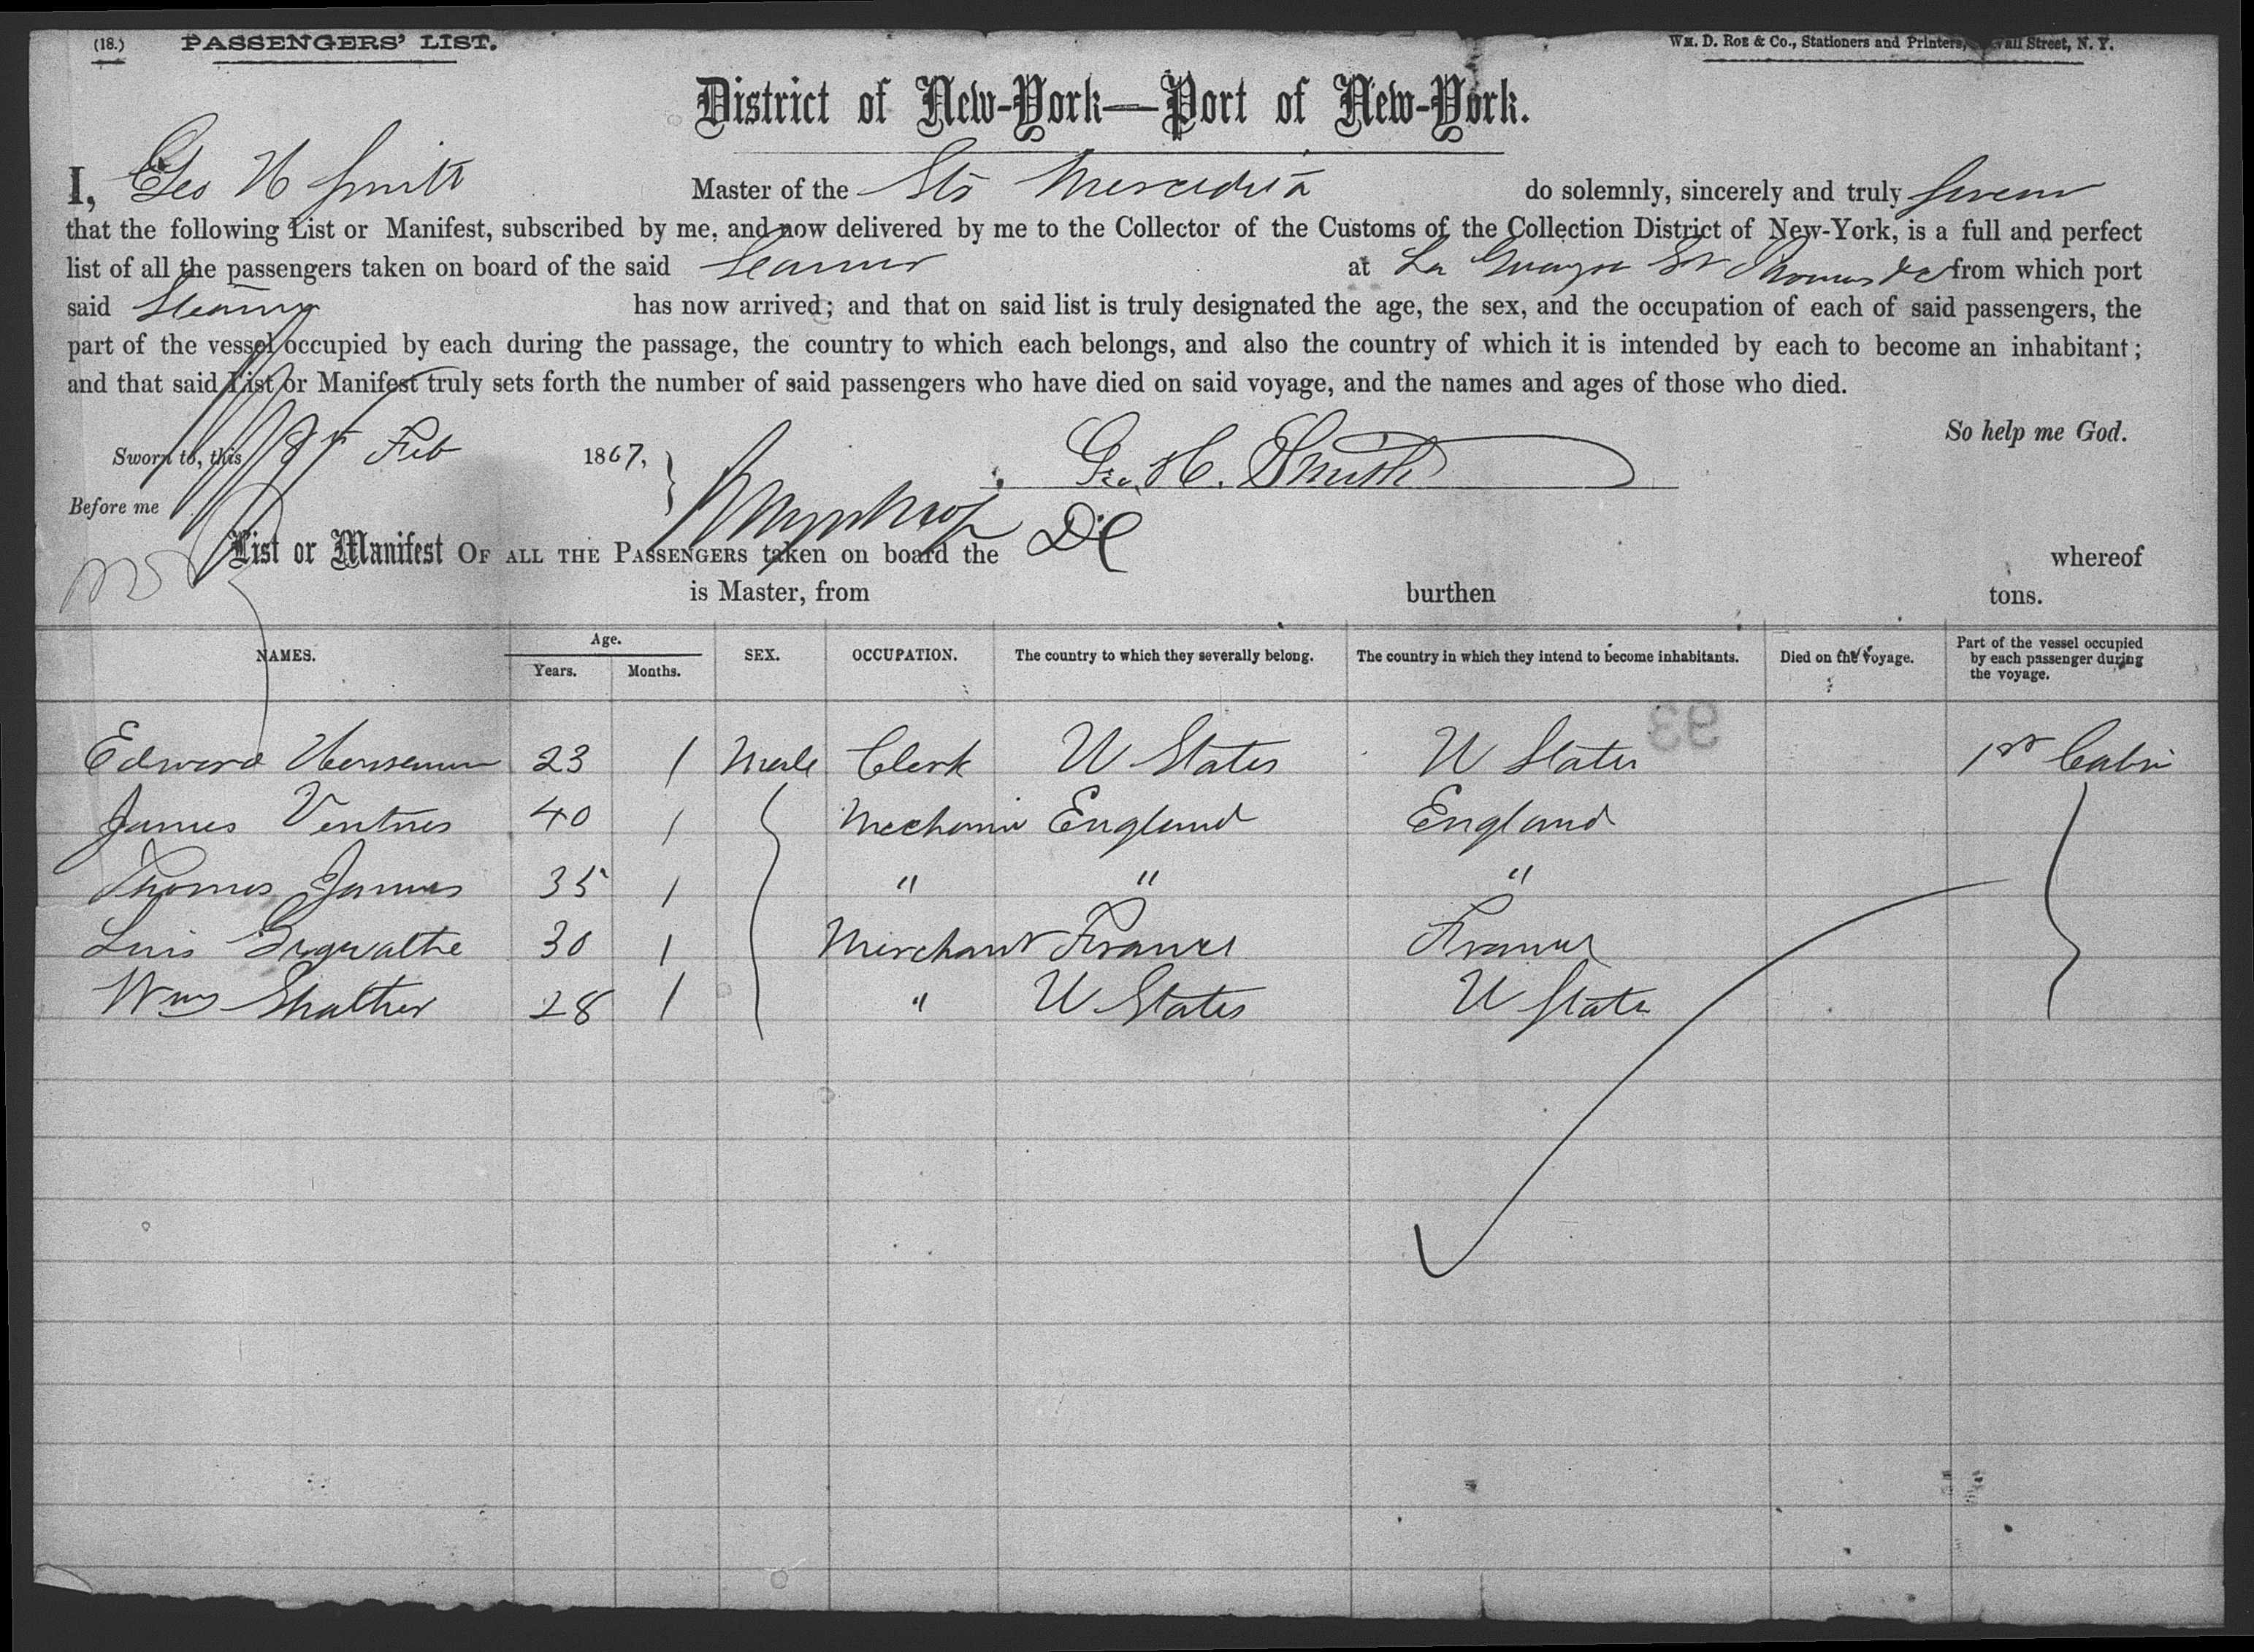 (18.) PASSENGERS' LIST.
WM. D. ROE & Co., Stationers and Printers, Wall Street, N. Y.
District of New-York—Port of New-York.
I, Geo H Smith Master of the Str Mercedita do solemnly, sincerely and truly swear
that the following List or Manifest, subscribed by me, and now delivered by me to the Collector of the Customs of the Collection District of New-York, is a full and perfect
list of all the passengers taken on board of the said Steamer at La Guayra St Thomas &c from which port
said Steamer has now arrived; and that on said list is truly designated the age, the sex, and the occupation of each of said passengers, the
part of the vessel occupied by each during the passage, the country to which each belongs, and also the country of which it is intended by each to become an inhabitant;
and that said List or Manifest truly sets forth the number of said passengers who have died on said voyage, and the names and ages of those who died.
So help me God.
Sworn to, this Feb 1867, Geo. H. Smith
Before me
DC
List or Manifest OF ALL THE PASSENGERS taken on board the whereof
is Master, from burthen tons.
NAMES. Age. Years. Months. SEX. OCCUPATION. The country to which they severally belong. The country in which they intend to become inhabitants. Died on the voyage. Part of the vessel occupied by each passenger during the voyage.
93
Edward 23 / Male Clerk U States U States 1st Cabin
James Ventres 40 / Mechanic England England
Thomas James 35 / " " "
Luis 30 / Merchant France France
Wm 28 / " U States U State